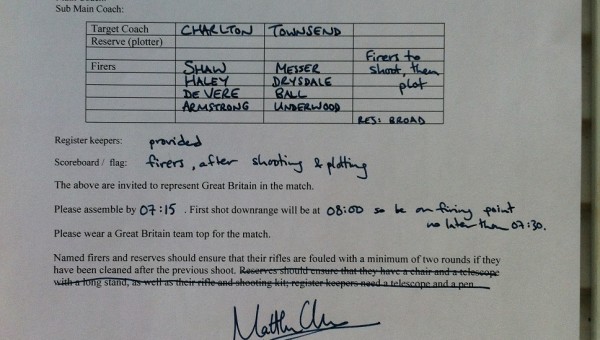 Sub Main Coach:
Target Coach CHARLTON TOWNSEND
Reserve (plotter)
Firers SHAW MESSER Firers to shoot, then plot
HALEY DRYSDALE
DE VERE BALL
ARMSTRONG UNDERWOOD
RES: BROAD
Register keepers: provided
Scoreboard / flag: firers, after shooting & plotting
The above are invited to represent Great Britain in the match.
Please assemble by 07:15 . First shot downrange will be at 08:00 so be on firing point
no later than 07:30.
Please wear a Great Britain team top for the match.
Named firers and reserves should ensure that their rifles are fouled with a minimum of two rounds if they
have been cleaned after the previous shoot. Reserves should ensure that they have a chair and a telescope
with a long stand, as well as their rifle and shooting kit; register keepers need a telescope and a pen